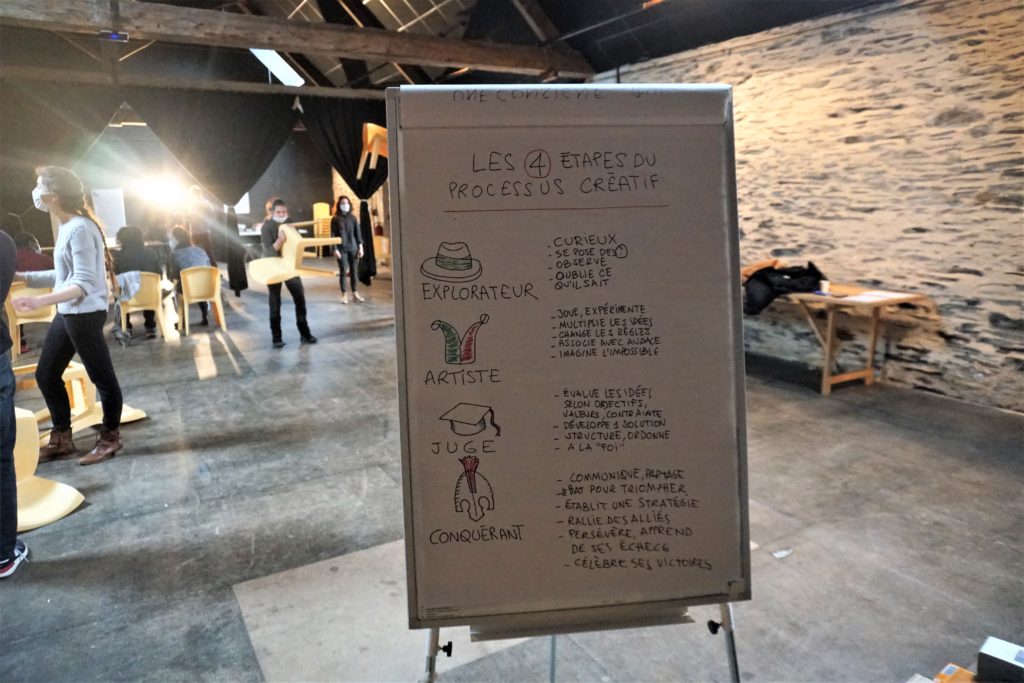 LES 4 ETAPES DU
PROCESSUS CRÉATIF
EXPLORATEUR
- CURIEUX
- SE POSE DES ?
- OBSERVE
- OUBLIE CE
QU'IL SAIT
ARTISTE
- JOUE, EXPÉRIMENTE
- MULTIPLIE LES IDÉES
- CHANGE LES RÈGLES
- ASSOCIE AVEC AUDACE
- IMAGINE L'IMPOSSIBLE
JUGE
- ÉVALUE LES IDÉES
SELON OBJECTIFS,
VALEURS, CONTRAINTE
- DÉVELOPPE 1 SOLUTION
- STRUCTURE, ORDONNE
- A LA "FOI"
CONQUÉRANT
- COMMUNIQUE, PARTAGE
- BAT POUR TRIOMPHER
- ÉTABLIT UNE STRATÉGIE
- RALLIE DES ALLIÉS
- PERSÉVÈRE, APPREND
DE SES ÉCHECS
- CÉLÈBRE SES VICTOIRES